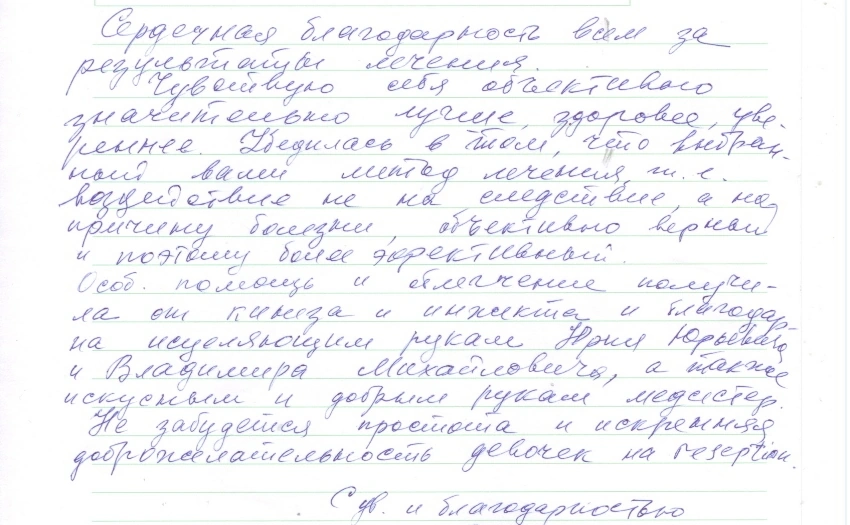 Сердечная благодарность всем за
результаты лечения.
Чувствую себя объективно
значительно лучше, здоровее, уве-
реннее. Убедилась в том, что выбран-
ный вами метод лечения, т. е.
воздействие не на следствие, а на
причину болезни, объективно верный
и поэтому более эффективный.
Особ. помощь и облегчение получи-
ла от кинеза и инжекта и благодар-
на исцеляющим рукам Юрия Юрьевича
и Владимира Михайловича, а также
искусным и добрым рукам медсестер.
Не забудется простота и искренняя
доброжелательность девочек на reseption.
С ув. и благодарностью